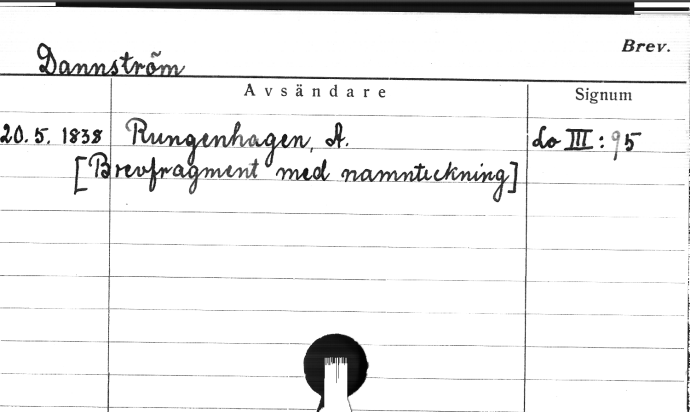 Brev.
Dannström
Avsändare Signum
20.5.1838 Rungenhagen, A. Lo III:95
[Brevfragment med namnteckning]